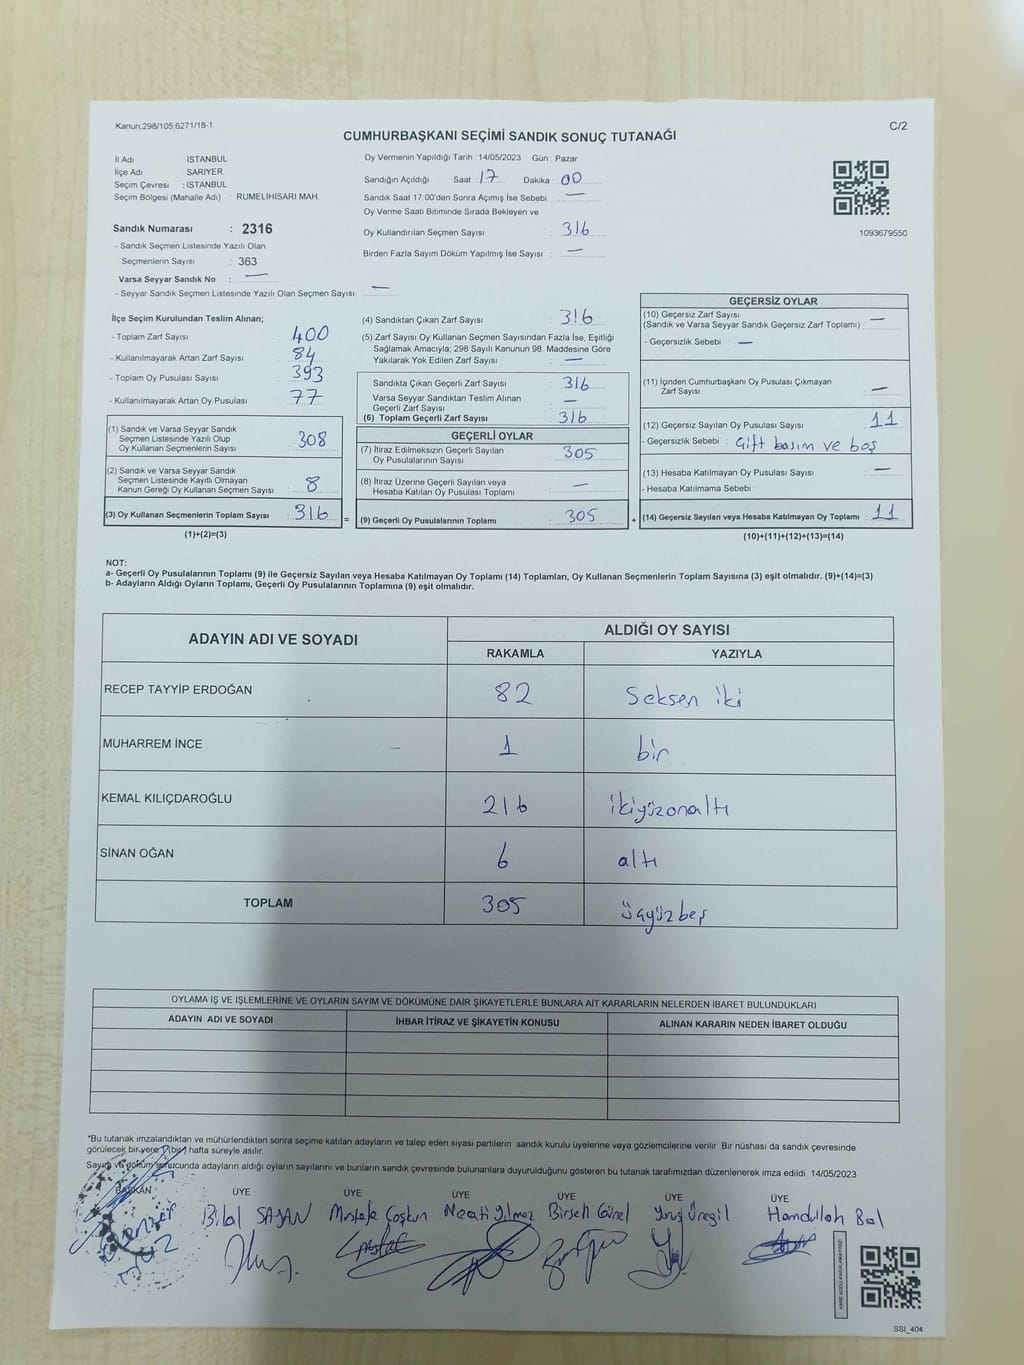 Kanun;298/105;6271/18-1
C/2
CUMHURBAŞKANI SEÇİMİ SANDIK SONUÇ TUTANAĞI
İl Adı : İSTANBUL
İlçe Adı : SARIYER
Seçim Çevresi : İSTANBUL
Seçim Bölgesi (Mahalle Adı) : RUMELİHİSARI MAH.
Sandık Numarası : 2316
- Sandık Seçmen Listesinde Yazılı Olan
Seçmenlerin Sayısı : 363
Varsa Seyyar Sandık No : —
- Seyyar Sandık Seçmen Listesinde Yazılı Olan Seçmen Sayısı: —
Oy Vermenin Yapıldığı Tarih : 14/05/2023 Gün : Pazar
Sandığın Açıldığı Saat : 17 Dakika : 00
Sandık Saat 17:00'den Sonra Açımış İse Sebebi : —
Oy Verme Saati Bitiminde Sırada Bekleyen ve
Oy Kullandırılan Seçmen Sayısı : 316
Birden Fazla Sayım Döküm Yapılmış İse Sayısı : —
1093679550
İlçe Seçim Kurulundan Teslim Alınan;
- Toplam Zarf Sayısı : 400
- Kullanılmayarak Artan Zarf Sayısı : 84
- Toplam Oy Pusulası Sayısı : 393
- Kullanılmayarak Artan Oy Pusulası : 77
(1) Sandık ve Varsa Seyyar Sandık
Seçmen Listesinde Yazılı Olup
Oy Kullanan Seçmenlerin Sayısı : 308
(2) Sandık ve Varsa Seyyar Sandık
Seçmen Listesinde Kayıtlı Olmayan
Kanun Gereği Oy Kullanan Seçmen Sayısı : 8
(3) Oy Kullanan Seçmenlerin Toplam Sayısı : 316
(1)+(2)=(3)
(4) Sandıktan Çıkan Zarf Sayısı : 316
(5) Zarf Sayısı Oy Kullanan Seçmen Sayısından Fazla İse, Eşitliği
Sağlamak Amacıyla, 298 Sayılı Kanunun 98. Maddesine Göre
Yakılarak Yok Edilen Zarf Sayısı : —
Sandıkta Çıkan Geçerli Zarf Sayısı : 316
Varsa Seyyar Sandıktan Teslim Alınan
Geçerli Zarf Sayısı : —
(6) Toplam Geçerli Zarf Sayısı : 316
GEÇERLİ OYLAR
(7) İtiraz Edilmeksizin Geçerli Sayılan
Oy Pusulalarının Sayısı : 305
(8) İtiraz Üzerine Geçerli Sayılan veya
Hesaba Katılan Oy Pusulası Toplamı : —
= (9) Geçerli Oy Pusulalarının Toplamı : 305
GEÇERSİZ OYLAR
(10) Geçersiz Zarf Sayısı
(Sandık ve Varsa Seyyar Sandık Geçersiz Zarf Toplamı) : —
- Geçersizlik Sebebi : —
(11) İçinden Cumhurbaşkanı Oy Pusulası Çıkmayan
Zarf Sayısı : —
(12) Geçersiz Sayılan Oy Pusulası Sayısı : 11
- Geçersizlik Sebebi : Çift basım ve boş
(13) Hesaba Katılmayan Oy Pusulası Sayısı : —
- Hesaba Katılmama Sebebi :
+ (14) Geçersiz Sayılan veya Hesaba Katılmayan Oy Toplamı : 11
(10)+(11)+(12)+(13)=(14)
NOT:
a- Geçerli Oy Pusulalarının Toplamı (9) ile Geçersiz Sayılan veya Hesaba Katılmayan Oy Toplamı (14) Toplamları, Oy Kullanan Seçmenlerin Toplam Sayısına (3) eşit olmalıdır. (9)+(14)=(3)
b- Adayların Aldığı Oyların Toplamı, Geçerli Oy Pusulalarının Toplamına (9) eşit olmalıdır.
ADAYIN ADI VE SOYADI
ALDIĞI OY SAYISI
RAKAMLA YAZIYLA
RECEP TAYYİP ERDOĞAN 82 Seksen iki
MUHARREM İNCE 1 bir
KEMAL KILIÇDAROĞLU 216 ikiyüzonaltı
SİNAN OĞAN 6 altı
TOPLAM 305 üçyüzbeş
OYLAMA İŞ VE İŞLEMLERİNE VE OYLARIN SAYIM VE DÖKÜMÜNE DAİR ŞİKAYETLERLE BUNLARA AİT KARARLARIN NELERDEN İBARET BULUNDUKLARI
ADAYIN ADI VE SOYADI İHBAR İTİRAZ VE ŞİKAYETİN KONUSU ALINAN KARARIN NEDEN İBARET OLDUĞU
*Bu tutanak imzalandıktan ve mühürlendikten sonra seçime katılan adayların ve talep eden siyasi partilerin sandık kurulu üyelerine veya gözlemcilerine verilir. Bir nüshası da sandık çevresinde
görülecek bir yere 7 (bir) hafta süreyle asılır.
Sayım ve döküm sonucunda adayların aldığı oyların sayılarını ve bunların sandık çevresinde bulunanlara duyurulduğunu gösteren bu tutanak tarafımızdan düzenlenerek imza edildi. 14/05/2023
BAŞKAN ÜYE ÜYE ÜYE ÜYE ÜYE ÜYE
Bilal SAYAN Mustafa Coşkun Necati Yılmaz Birsen Günel Hamdullah Bal
SSİ_404